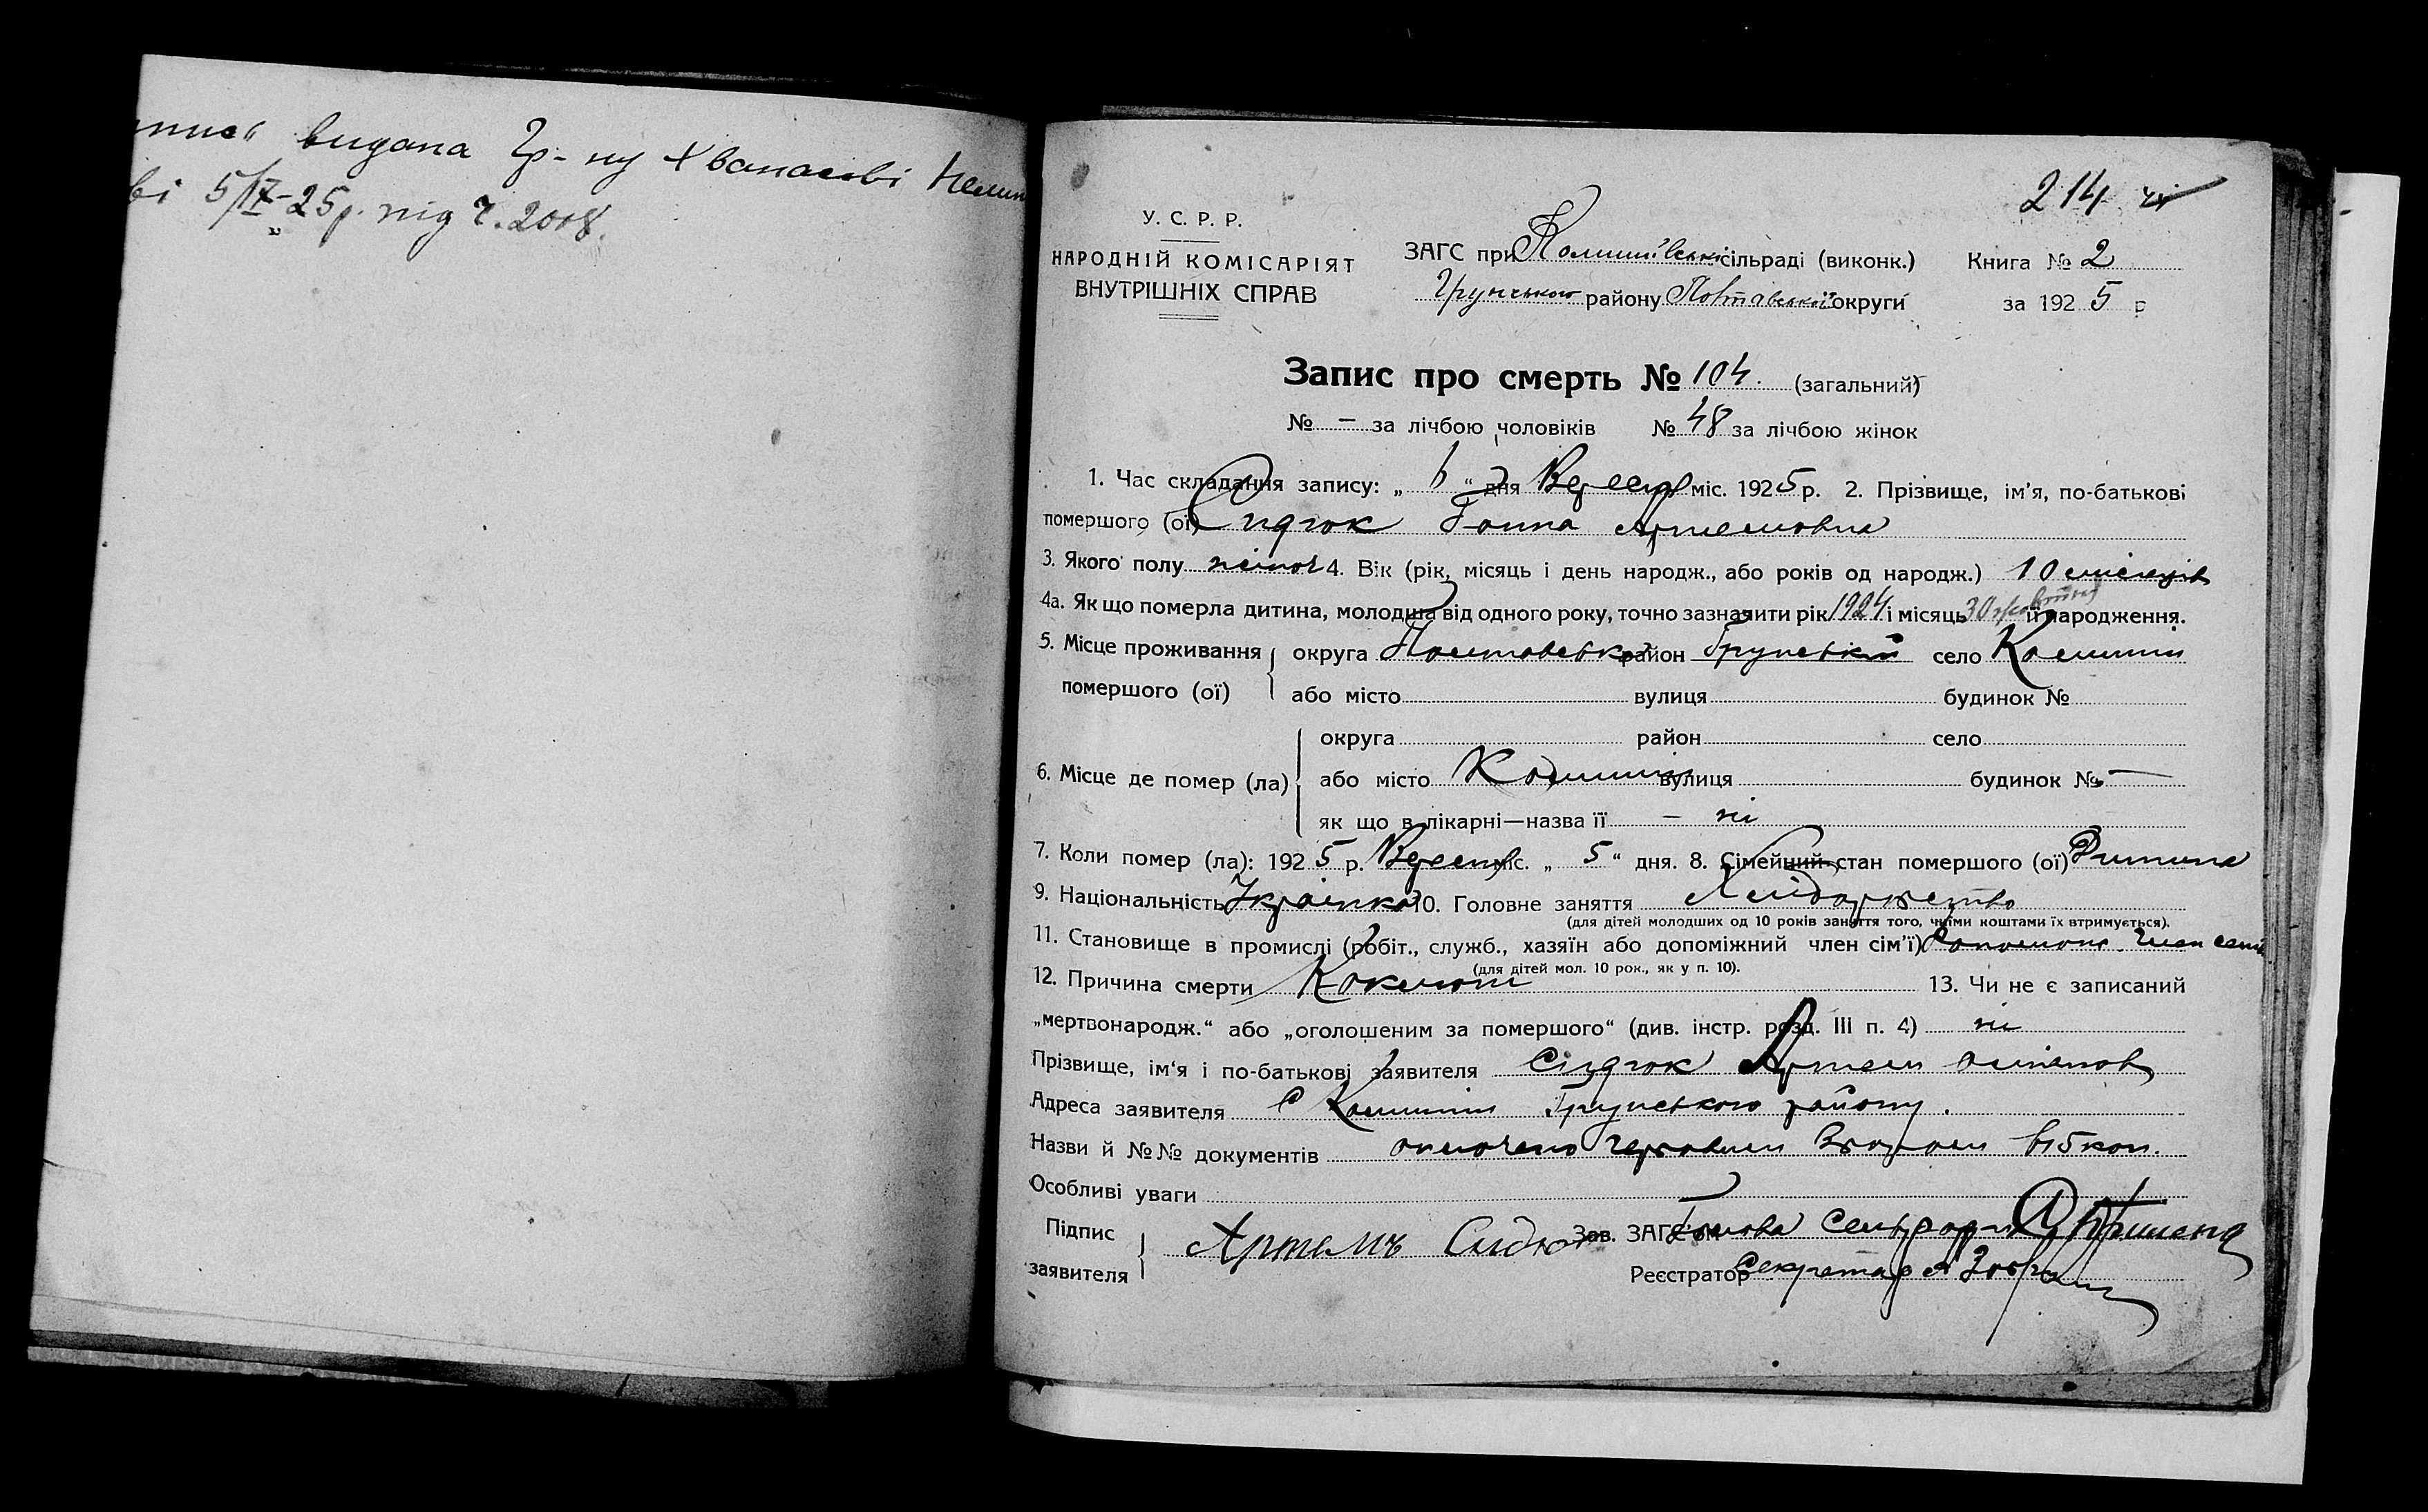 видана Гр-ну Хванасові
ві 5/IX-25р. під ч. 2008.
214
У. С. Р. Р.
НАРОДНІЙ КОМІСАРІЯТ
ВНУТРІШНІХ СПРАВ
ЗАГС при сільраді (виконк.)
Грунського району Полтавської округи
Книга № 2
за 1925 р
Запис про смерть № 104. (загальний)
№ – за лічбою чоловіків № 48 за лічбою жінок
1. Час складання запису: „ 6 “ дня Вересня міс. 1925 р. 2. Прізвище, ім'я, по-батькові
помершого (ої) Сидюк Ганна Артемовна
3. Якого полу жіноч 4. Вік (рік, місяць і день народж., або років од народж.) 10 місяців
4а. Як що померла дитина, молодша від одного року, точно зазначити рік 1924 і місяць 30 жовтня її народження.
5. Місце проживання помершого (ої) округа Полтавська район Грунський село Комиші
або місто вулиця будинок №
6. Місце де помер (ла) округа район село
або місто Комиші вулиця будинок № —
як що в лікарні—назва її – ні
7. Коли помер (ла): 1925 р. Вересня міс. „ 5 “ дня. 8. Сімейний стан помершого (ої) Дитина
9. Національність Українка 10. Головне заняття Хліборобство
(для дітей молодших од 10 років заняття того, чиїми коштами їх втримується).
11. Становище в промислі (робіт., служб., хазяїн або допоміжний член сім'ї) Допомож. член сем
(для дітей мол. 10 рок., як у п. 10).
12. Причина смерти Коклюш 13. Чи не є записаний
„мертвонародж.“ або „оголошеним за помершого“ (див. інстр. розд. III п. 4) ні
Прізвище, ім'я і по-батькові заявителя Сидюк Артем
Адреса заявителя С Комиші Грунського району.
Назви й №№ документів оплочено 15 коп.
Особливі уваги
Підпис заявителя Артемъ Сидюк Зав. ЗАГС'ом Голова
Реєстратор Секретар